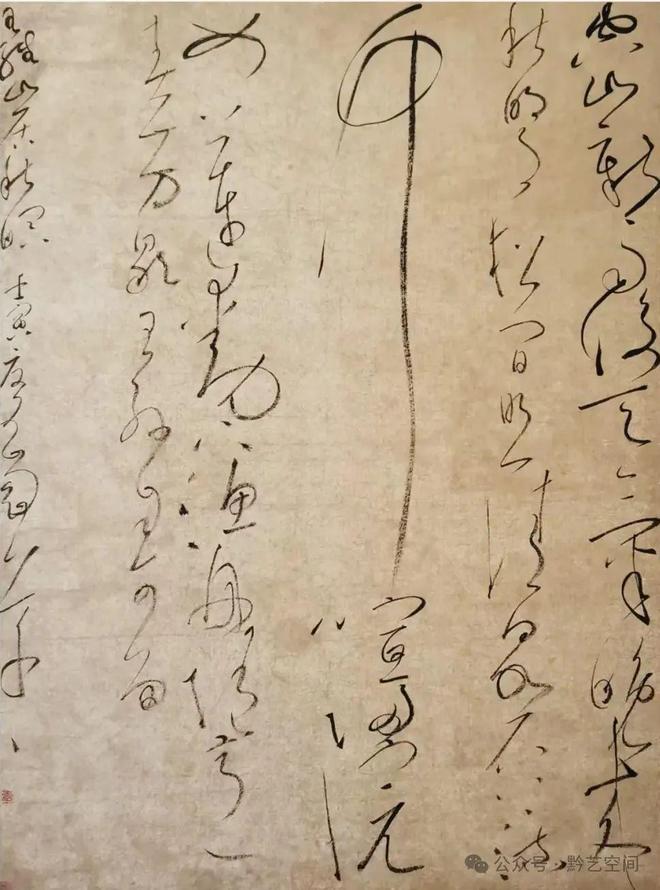 空山新雨後天氣晚来
秋明月松間照清泉石上流
竹喧歸浣
女蓮動下漁舟隨意
春芳歇王孫自可留
王維山居秋暝 壬寅
公众号·黔艺空间